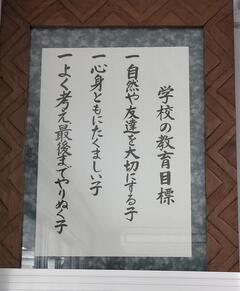 学校の教育目標
一 自然や友達を大切にする子
一 心身ともにたくましい子
一 よく考え最後までやりぬく子